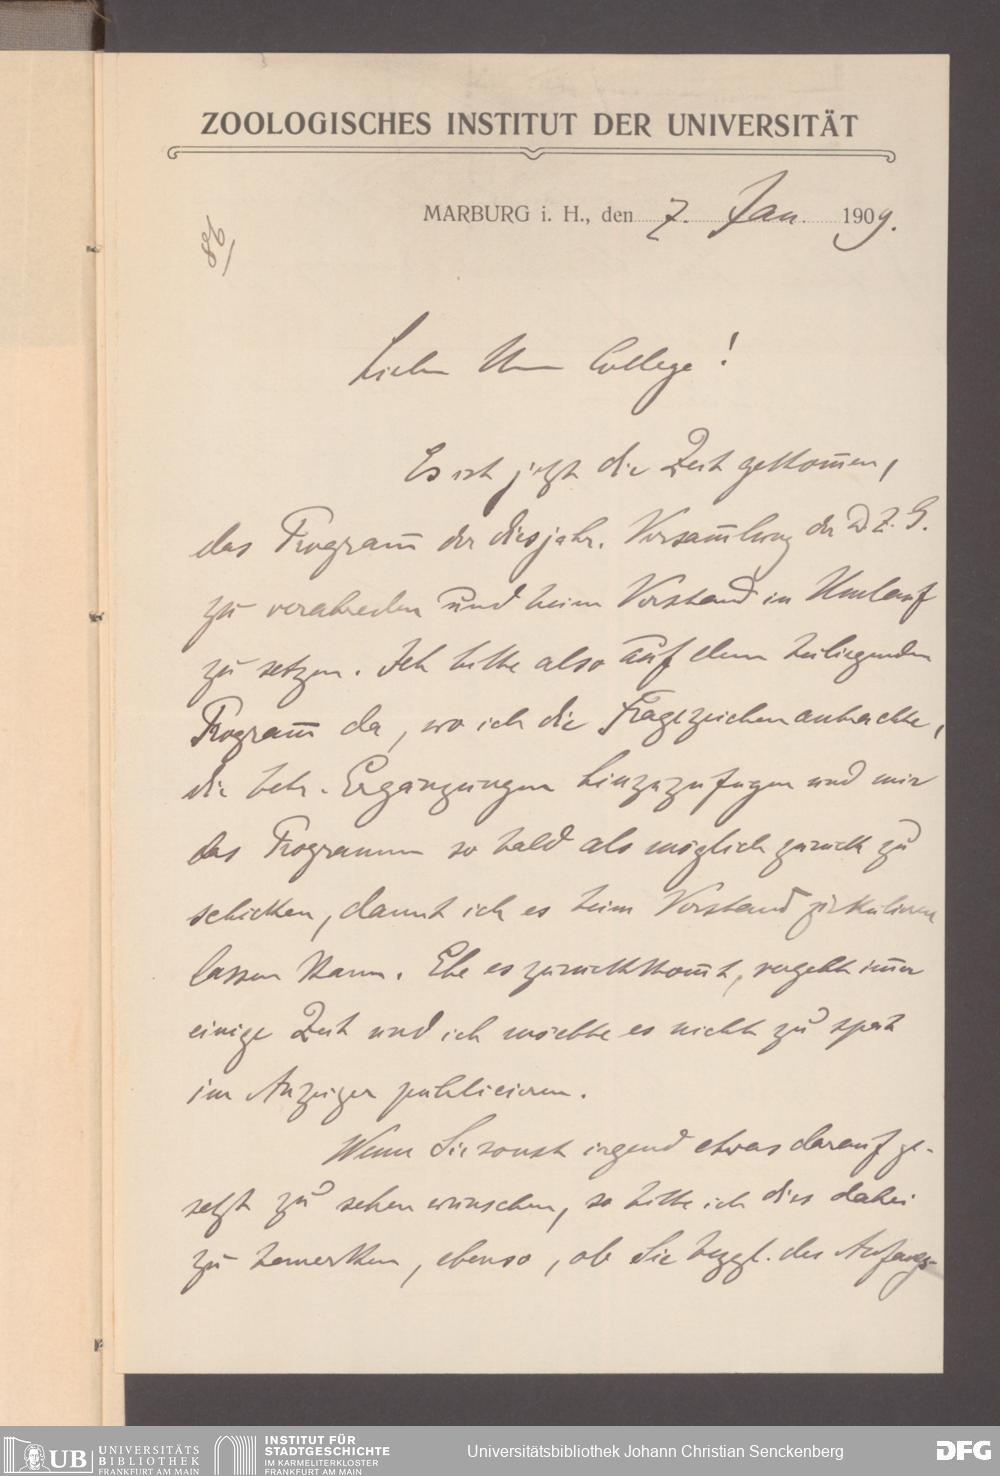 ZOOLOGISCHES INSTITUT DER UNIVERSITÄT
MARBURG i. H., den 7. Jan. 1909.
86
Lieber Herr College!
Es ist jetzt die Zeit gekom̅en,
das Program̅ der diesjahr. Versam̅lung der D. Z. G.
zu verabreden und beim Vorstand in Umlauf
zu setzen. Ich bitte also auf dem beiliegenden
Program̅ da, wo ich die Fragezeichen anbrachte,
die betr. Ergänzungen hinzuzufügen und mir
das Programm so bald als möglich zurück zu
schicken, damit ich es beim Vorstand zirkuliren
lassen kann. Ehe es zurückkom̅t, vergeht im̅er
einige Zeit und ich möchte es nicht zu spät
im Anzeiger publicieren.
Wenn Sie sonst irgend etwas darauf ge-
setzt zu sehen wünschen, so bitte ich dies dabei
zu bemerken, ebenso, ob Sie bezgl. des Anfangs-
UB UNIVERSITÄTS
BIBLIOTHEK
FRANKFURT AM MAIN
INSTITUT FÜR
STADTGESCHICHTE
IM KARMELITERKLOSTER
FRANKFURT AM MAIN
Universitätsbibliothek Johann Christian Senckenberg
DFG